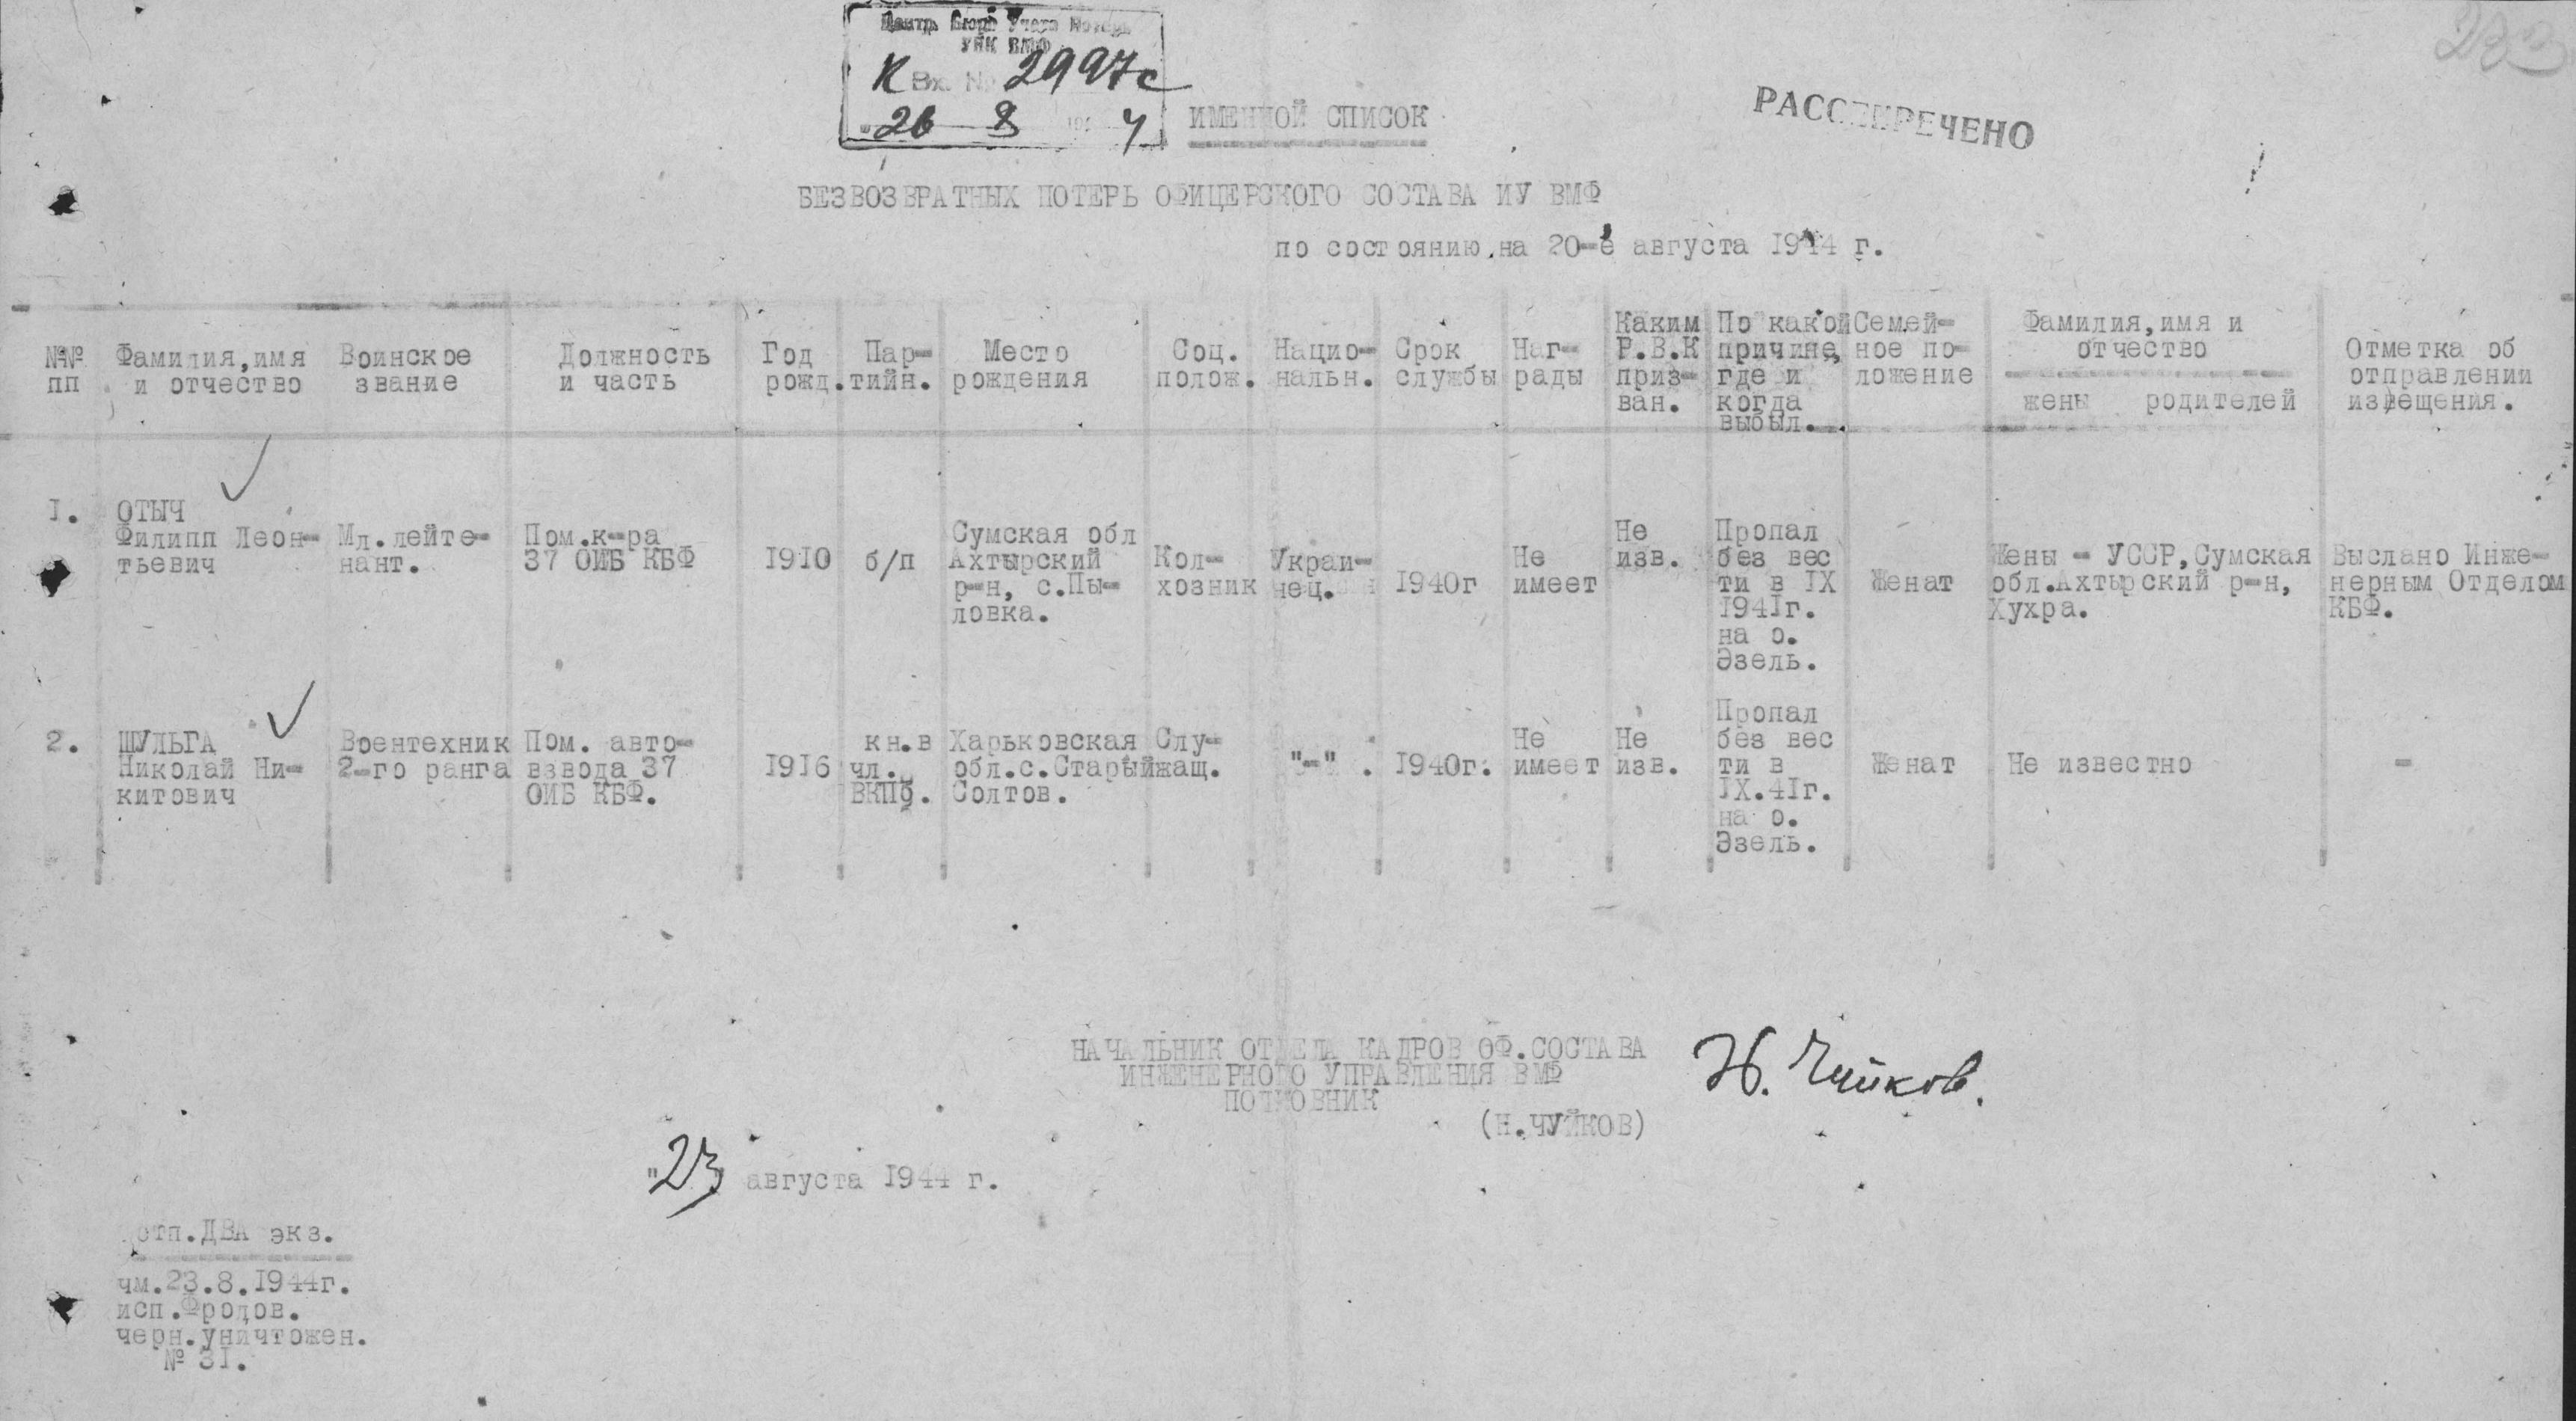 233
Центр. Бюро Учета Потерь
УНК ВМФ
К Вх. № 2997с
"26 8 194 4
РАССЕКРЕЧЕНО
ИМЕННОЙ СПИСОК
БЕЗВОЗВРАТНЫХ ПОТЕРЬ ОФИЦЕРСКОГО СОСТАВА ИУ ВМФ
по состоянию на 20-е августа 1944 г.
№№ пп
Фамилия, имя и отчество
Воинское звание
Должность и часть
Год рожд.
Пар-тийн.
Место рождения
Соц. полож.
Нацио-нальн.
Срок службы
Наг-рады
Каким Р.В.К приз-ван.
По какой причине, где и когда выбыл.
Семей-ное по-ложение
Фамилия, имя и отчество
жены родителей
Отметка об отправлении извещения.
1.
ОТЫЧ
Филипп Леон-
тьевич
Мл.лейте-
нант.
Пом.к-ра
37 ОИБ КБФ
1910
б/п
Сумская обл
Ахтырский
р-н, с.Пы-
ловка.
Кол-
хозник
Украи-
нец.
1940г
Не
имеет
Не
изв.
Пропал
без вес
ти в IX
1941г.
на о.
Эзель.
Женат
Жены - УССР, Сумская
обл.Ахтырский р-н,
Хухра.
Выслано Инже-
нерным Отделом
КБФ.
2.
ШУЛЬГА
Николай Ни-
китович
Воентехник
2-го ранга
Пом. авто-
взвода 37
ОИБ КБФ.
1916
кн.в
чл.
ВКПб.
Харьковская
обл.с.Старый
Солтов.
Слу-
жащ.
"-" .
1940г.
Не
имеет
Не
изв.
Пропал
без вес
ти в
IX.41г.
на о.
Эзель.
Женат
Не известно
-
НАЧАЛЬНИК ОТДЕЛА КАДРОВ ОФ.СОСТАВА
ИНЖЕНЕРНОГО УПРАВЛЕНИЯ ВМФ
ПОЛКОВНИК
(Н.ЧУЙКОВ)
Н. Чуйков.
"23 августа 1944 г.
отп.ДВА экз.
чм.23.8.1944г.
исп.Фродов.
черн.уничтожен.
№ 31.